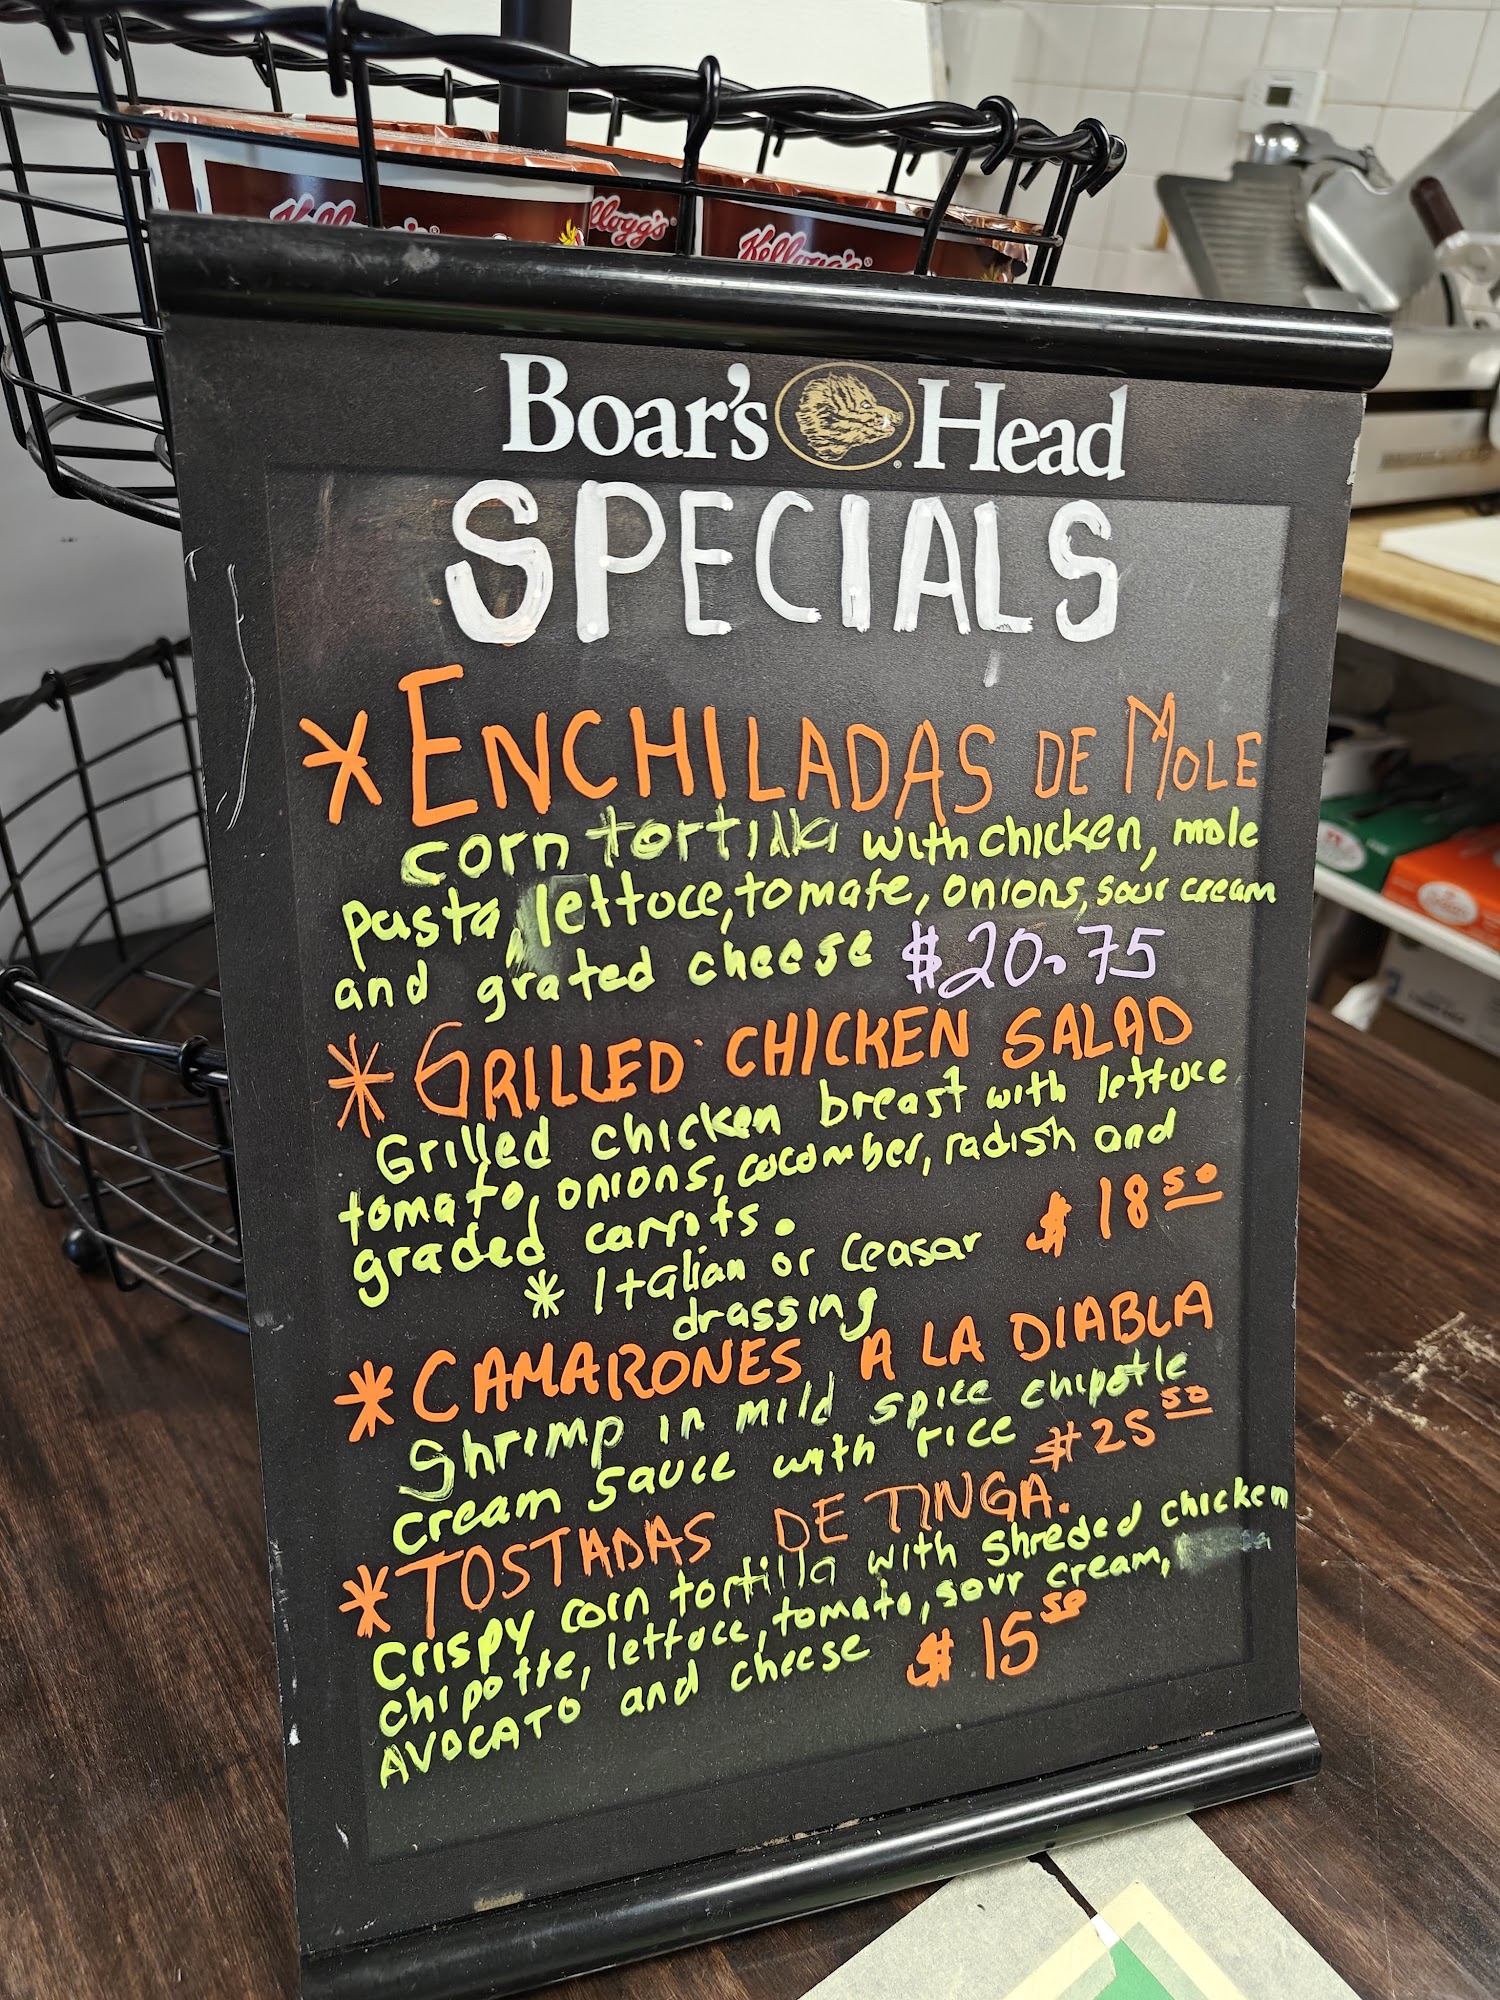 Kellogg's
Kellogg's
Kellogg's
Boar's Head
SPECIALS
* ENCHILADAS DE MOLE
corn tortilla with chicken, mole
pasta, lettuce, tomate, onions, sour cream
and grated cheese $20.75
* GRILLED CHICKEN SALAD
Grilled chicken breast with lettuce
tomato, onions, cocomber, radish and
graded carrots. $18.50
* Italian or Ceasar
drassing
* CAMARONES A LA DIABLA
Shrimp in mild spice chipotle
cream sauce with rice $25.50
* TOSTADAS DE TINGA.
Crispy corn tortilla with shreded chicken
chipotte, lettuce, tomato, sour cream,
AVOCATO and cheese $15.50